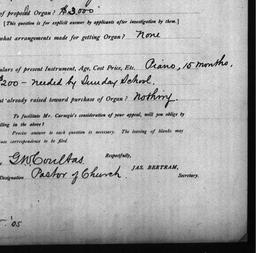 of proposed Organ? $3,000.
[This question is for explicit answer by applicants after investigation by them.]
what arrangements made for getting Organ? None
ulars of present Instrument, Age, Cost Price, Etc. Piano, 15 months,
$200 - needed by Sunday School.
nt already raised toward purchase of Organ? Nothing
To facilitate Mr. Carnegie's consideration of your appeal, will you oblige by
lling in the above?
Precise answer to each question is necessary. The leaving of blanks may
use correspondence to be filed.
Respectfully,
G W Coultas
JAS. BERTRAM,
Designation Pastor of Church. Secretary.
'05